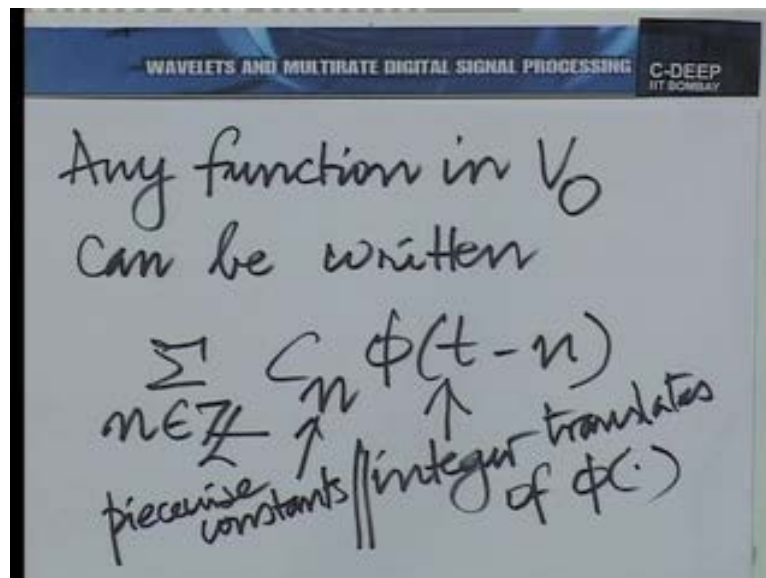 WAVELETS AND MULTIRATE DIGITAL SIGNAL PROCESSING
C-DEEP
IIT BOMBAY
Any function in V₀
can be written
Σ Cₙ ϕ(t - n)
n∈ℤ
piecewise constants || integer translates of ϕ(·)